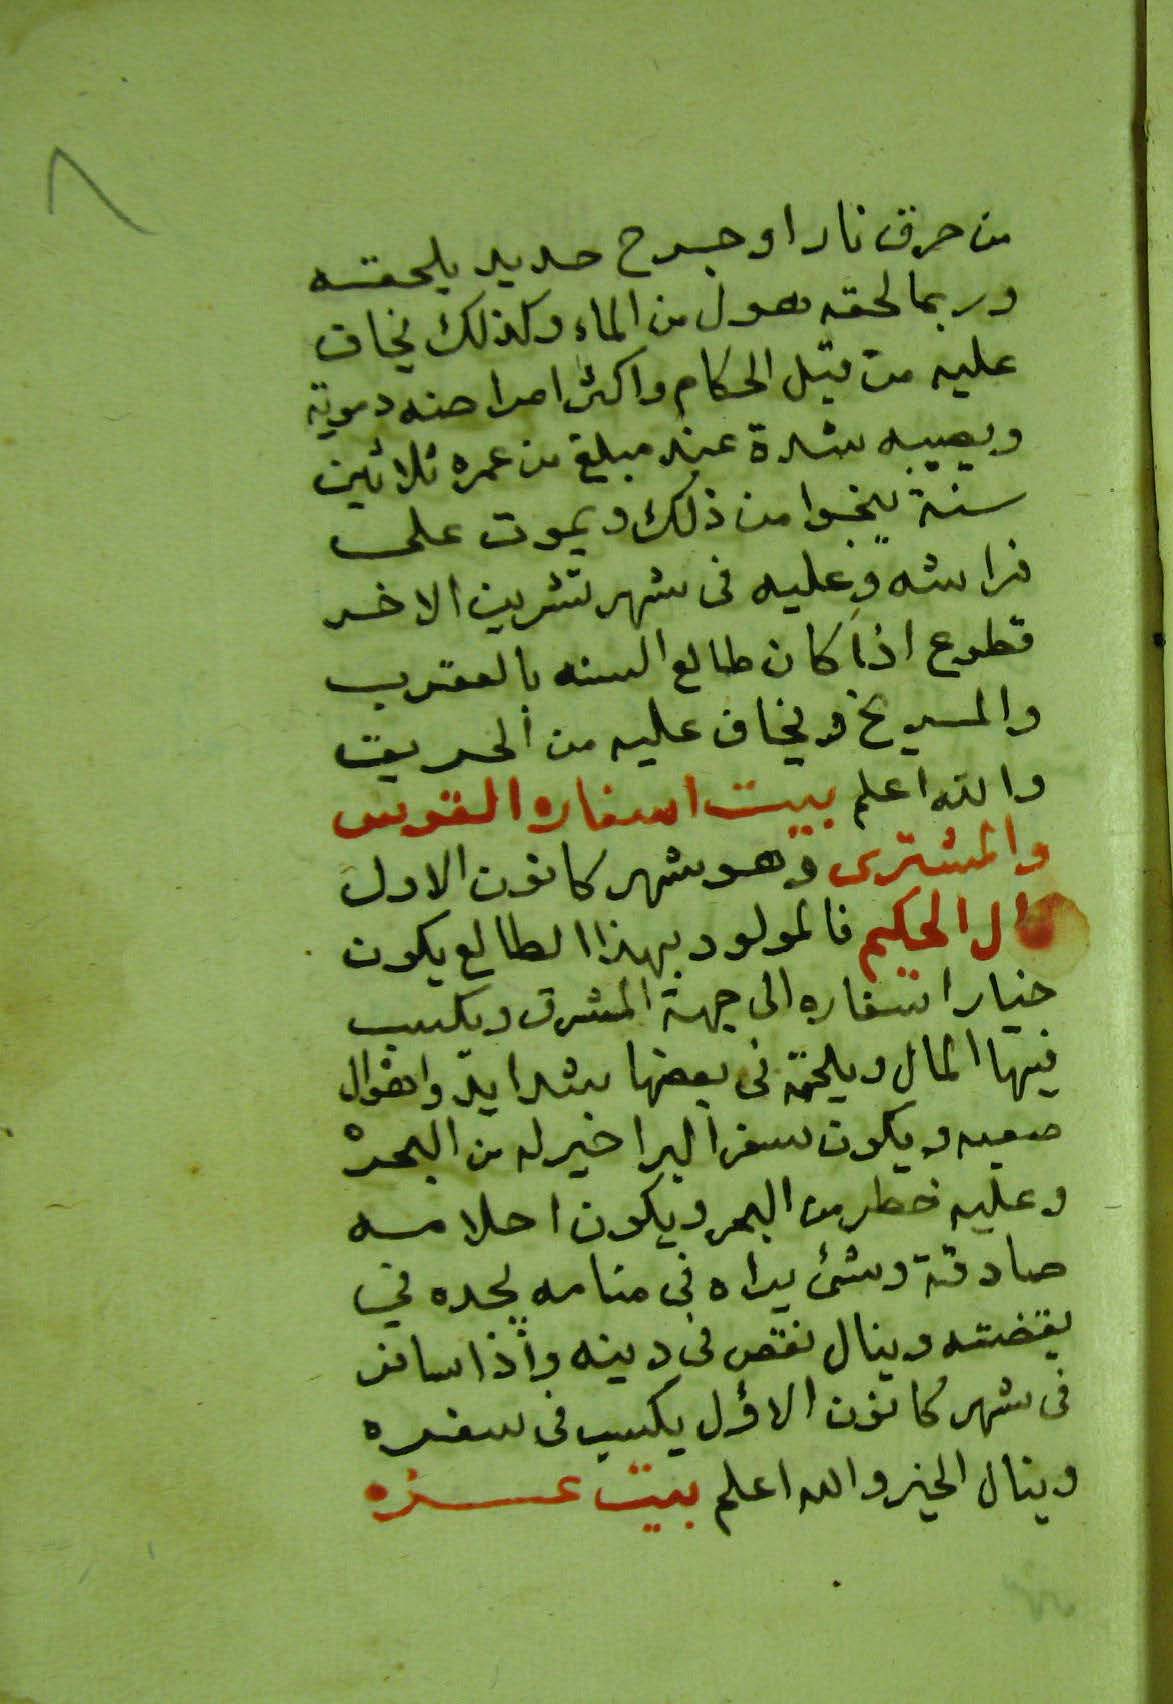 ٨
من حرق نار او جرح حديد يلحقه
وربما لحقه هول من الماء وكذلك يخاف
عليه من قبل الحكام واكثر امراضه دموية
ويصيبه شدة عند مبلغ من عمره ثلاثين
سنة ينجوا من ذلك ويموت على
فراشه وعليه في شهر تشرين الاخر
قطوع اذا كان طالع السنه بالعقرب
والمريخ ويخاف عليه من الحريق
والله اعلم بيت اسفاره القوس
والمشترى وهو شهر كانون الاول
قال الحكيم فالمولود بهذا الطالع يكون
خيار اسفاره الى جهة المشرق ويكسب
فيها المال ويلحقه في بعضها شدايد واهوال
صعبه ويكون سفر البر اخير له من البحر
وعليه خطر من البحر ويكون احلامه
صادقة وشئ يراه في منامه يجده في
يقضته وينال نقص في دينه واذا سافر
في شهر كانون الاول يكسب في سفره
وينال الخير والله اعلم بيت عزه